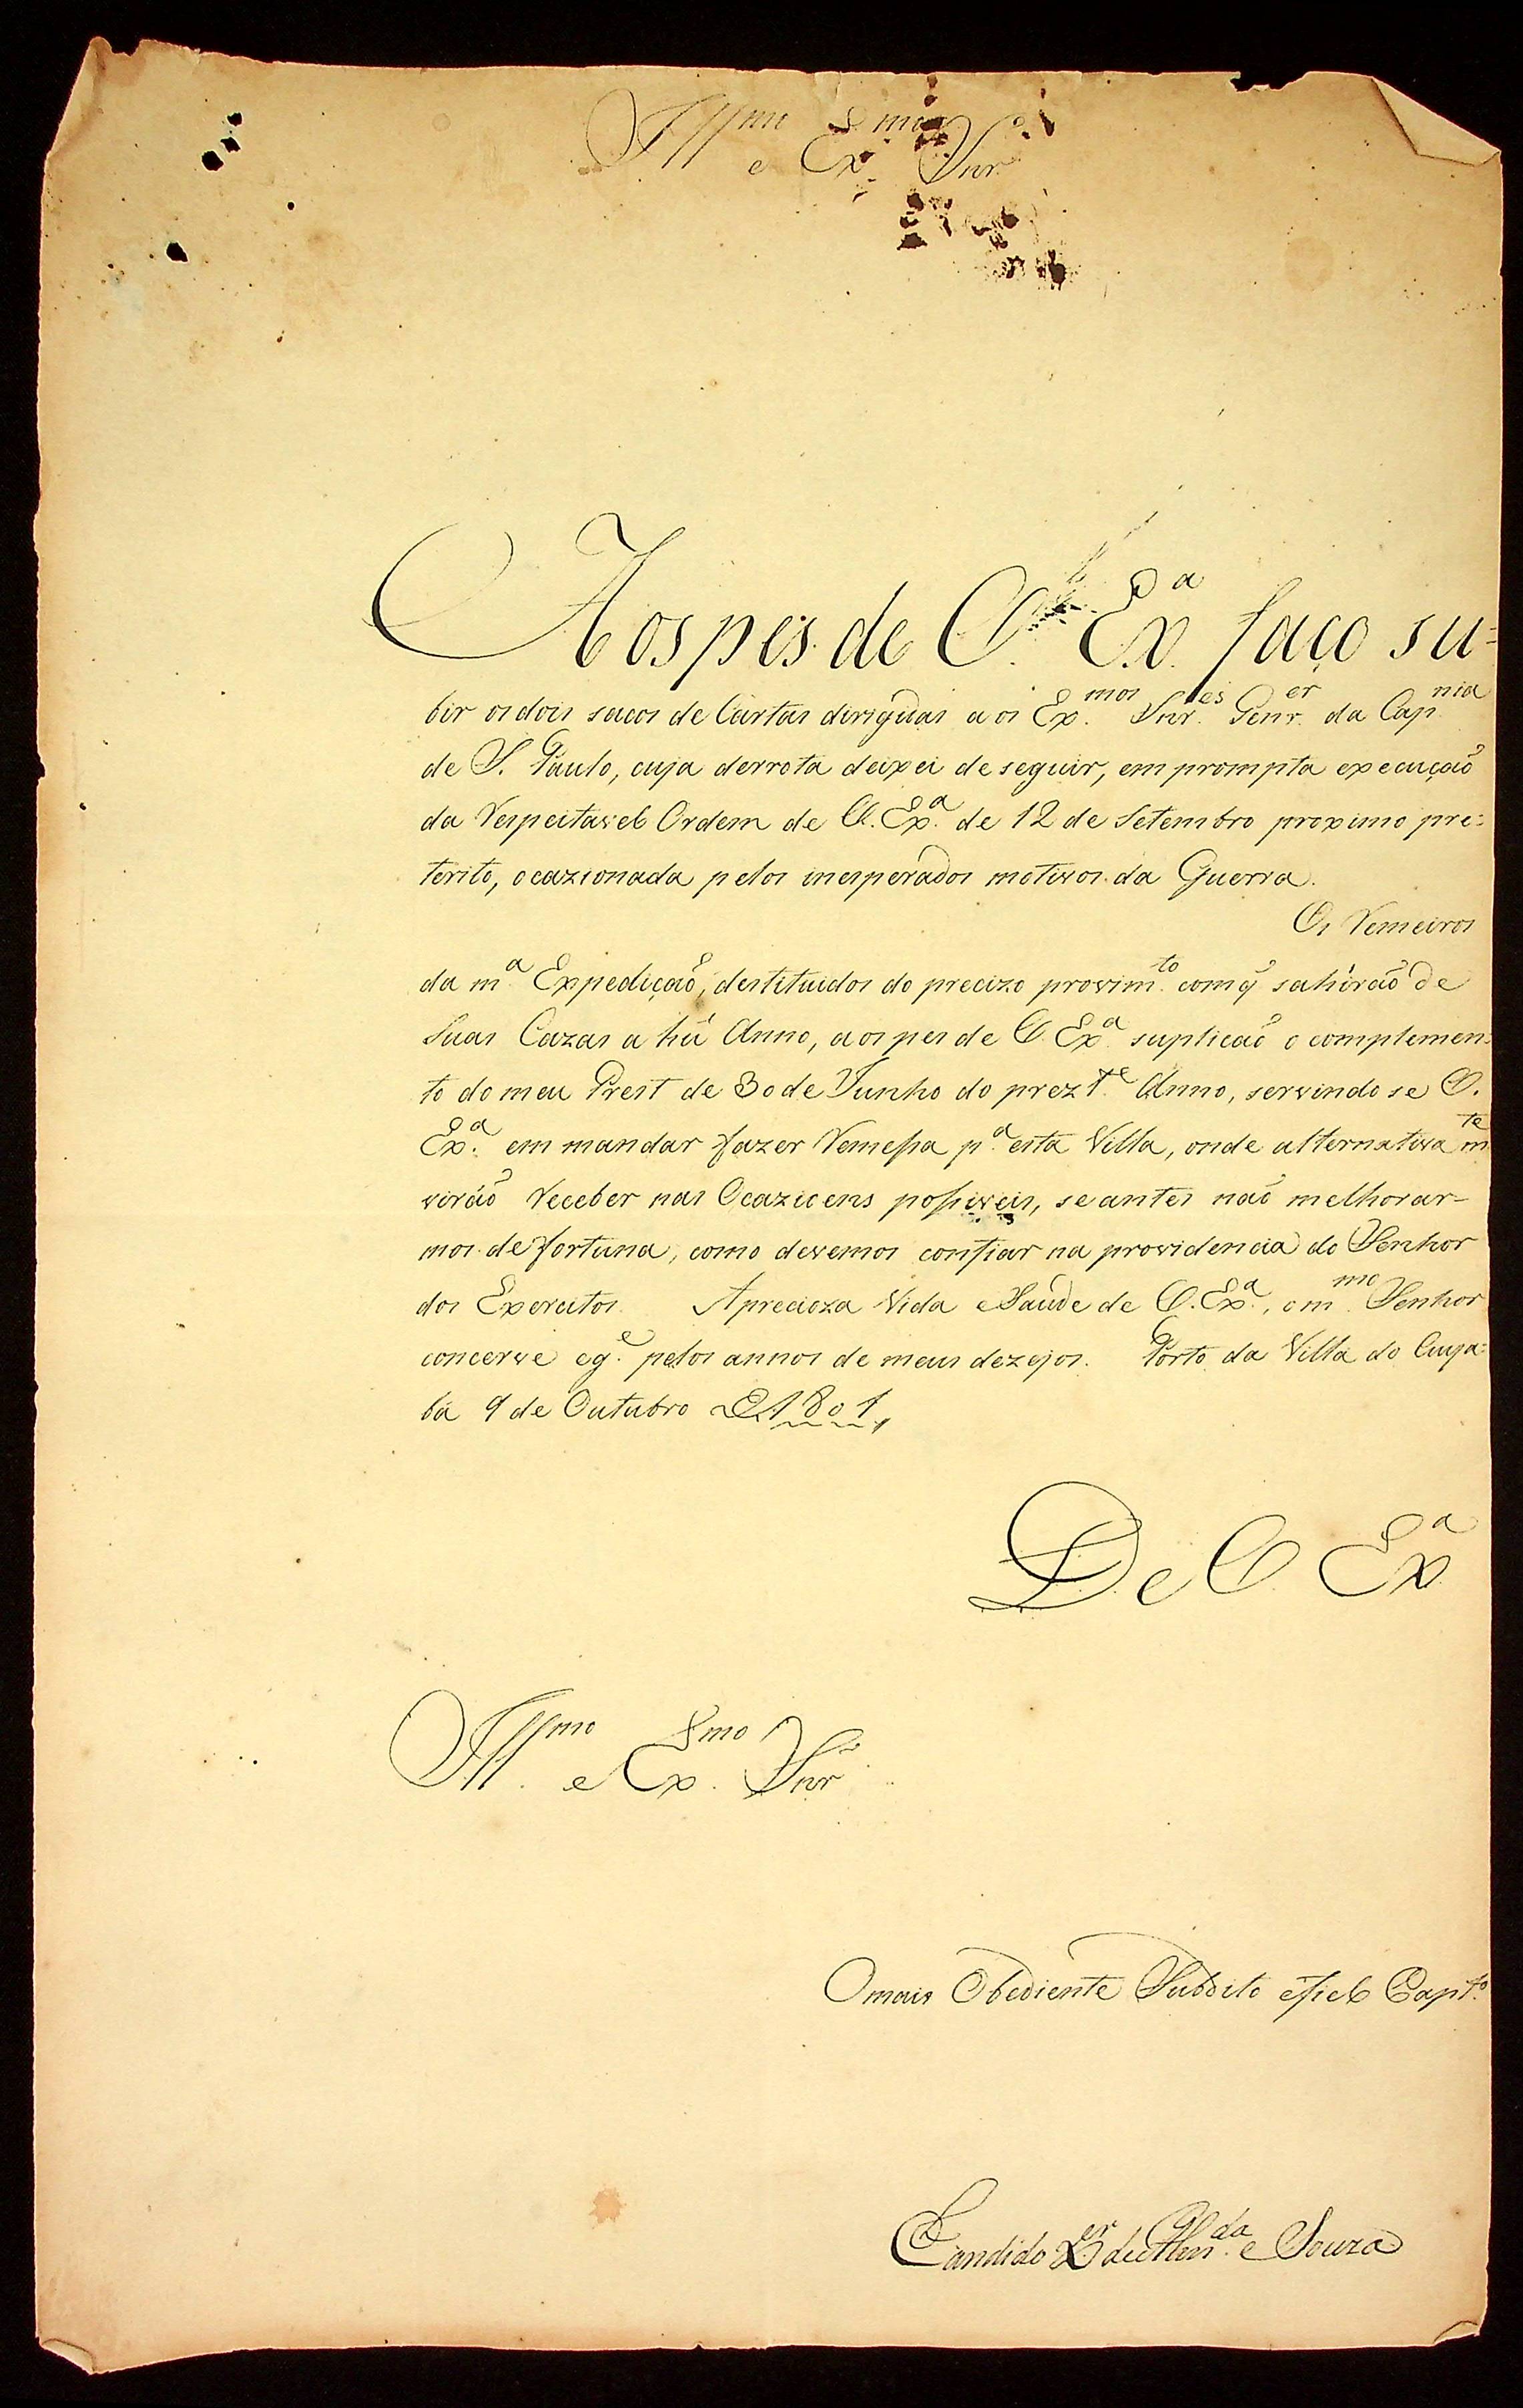 Ill.mo e Ex.mo Snr.
Aos pes de V. Ex.a faço su=
bir os dois sacos de Cartas dirigidas aos Ex.mos Snr.es Gen.er da Cap.nia
de S. Paulo, cuja derrota deixei de seguir, em prompta execução
da Respeitavel Ordem de V. Ex.a de 12 de Setembro proximo pre=
terito, ocazionada pelos inesperados motivos da Guerra.
Os Remeiros
da m.a Expedição, destituidos do precizo provim.to com q̃ sahirão de
suas Cazas a hũ Anno, aos pes de V. Ex.a suplicão o complemen=
to do meu Prest de 30 de Junho do prez.te Anno, servindo se V.
Ex.a em mandar fazer Remessa p.a esta Villa, onde alternativam.te
virão receber nas Ocazioens possiveis, se antes não melhorar-
mos de fortuna, como devemos confiar na providencia do Senhor
dos Exercitos. A precioza Vida e Saude de V. Ex.a, o m.mo Senhor
concerve e g.e pelos annos de meus dezejos. Porto da Villa do Cuya=
bá 9 de Outubro de 1801,
De V. Ex.a
Ill.mo e Ex.mo Snr.
O mais Obediente Subdito e fiel Capt.o
Candido X.er de Alm.da e Souza